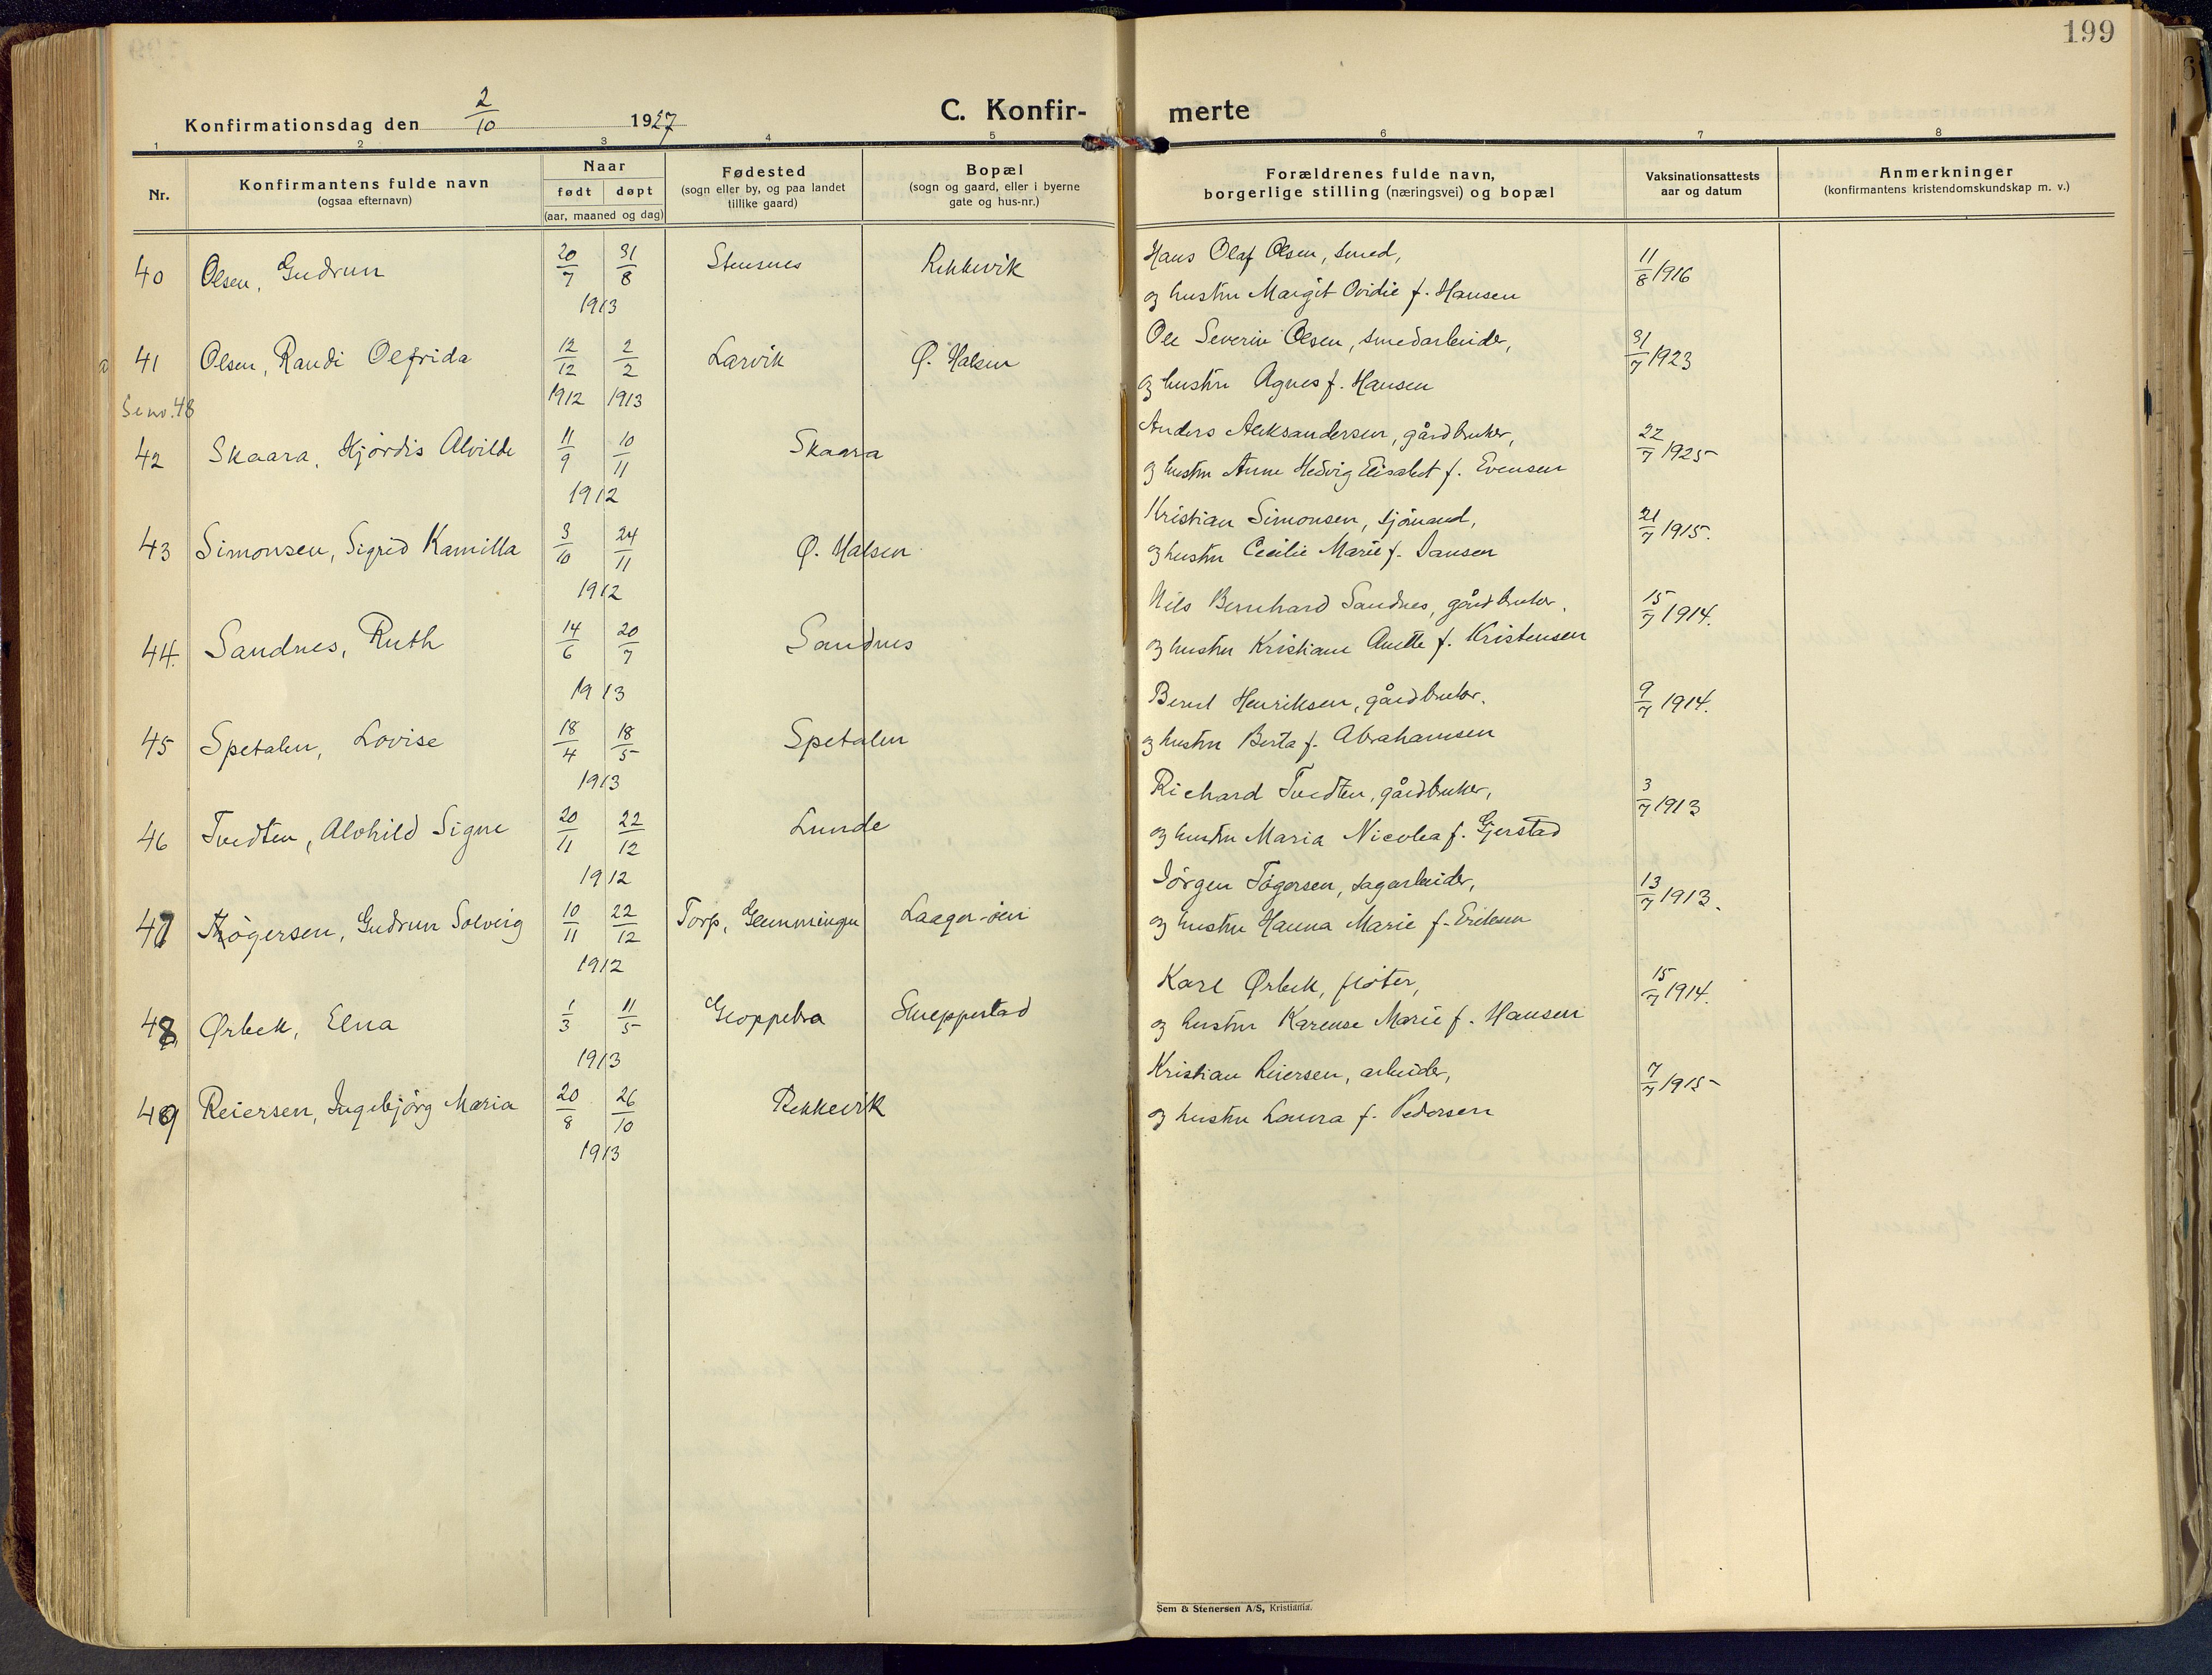 199
Konfirmationsdag den 2/10 1927
C. Konfir- merte
1 2 3 4 5 6 7 8
Nr.
Konfirmantens fulde navn
(ogsaa efternavn)
Naar
født døpt
(aar, maaned og dag)
Fødested
(sogn eller by, og paa landet
tillike gaard)
Bopæl
(sogn og gaard, eller i byerne
gate og hus-nr.)
Forældrenes fulde navn,
borgerlige stilling (næringsvei) og bopæl
Vaksinationsattests
aar og datum
Anmerkninger
(konfirmantens kristendomskundskap m. v.)
40 Olsen, Gudrun 20/7 31/8 1913 Stensnes Rekkevik
Hans Olaf Olsen, smed,
og hustru Margit Ovidie f. Hansen
11/8 1916
41 Olsen, Randi Olfrida 12/12 1912 2/2 1913 Larvik Ø. Halsen
Ole Severin Olsen, smedarbeider,
og hustru Agnes f. Hansen
31/7 1923
Se nr. 48
42 Skaara, Hjördis Alvilde 11/9 10/11 1912 Skaara
Anders Aleksandersen, gårdbruker,
og hustru Anne Hedvig Elisabet f. Evensen
22/7 1925
43 Simonsen, Sigrid Kamilla 3/10 24/11 1912 Ø. Halsen
Kristian Simonsen, sjömand,
og hustru Cecilie Marie f. Jansen
21/7 1915.
44. Sandnes, Ruth 14/6 20/7 1913 Sandnes
Nils Bernhard Sandnes, gårdbruker,
og hustru Kristiane Anette f. Kristensen
15/7 1914.
45 Spetalen, Lovise 18/4 18/5 1913 Spetalen
Bernt Henriksen, gårdbruker,
og hustru Berta f. Abrahamsen
9/7 1914.
46 Tvedten, Alvhild Signe 20/11 22/12 1912 Lunde
Richard Tvedten, gårdbruker,
og hustru Maria Nicolea f. Gjerstad
3/7 1913
47 Thögersen, Gudrun Solveig 10/11 22/12 1912 Torp, Laager-öen
Jörgen Tögersen, sagarbeider,
og hustru Hanna Marie f. Eriksen
13/7 1913.
48 Ørbek, Elna 1/3 11/5 1913 Gloppebra Skreppestad
Karl Ørbek, flöter,
og hustru Karense Marie f. Hansen
15/7 1914.
49 Reiersen, Ingebjörg Maria 20/8 26/10 1913 Rekkevik
Kristian Reiersen, arbeider,
og hustru Laura f. Pedersen
7/7 1915
Sem & Stenersen A/S, Kristiania.